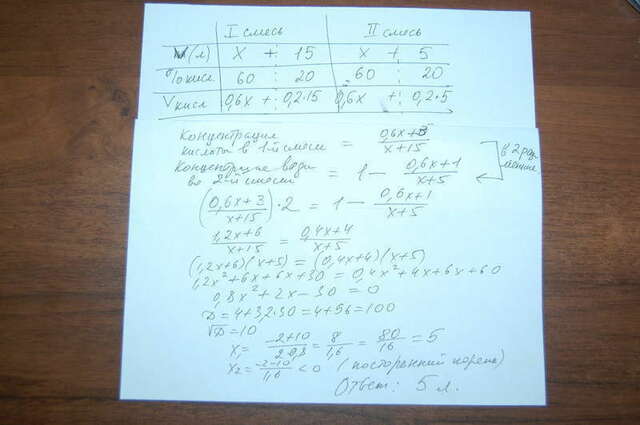 I смесь II смесь
V(л) x + 15 x + 5
% кисл. 60 20 60 20
V кисл 0,6x + 0,2·15 0,6x + 0,2·5
Концентрация
кислоты в 1-й смеси = 0,6x+3 / x+15
Концентрация воды
во 2-й смеси = 1 − 0,6x+1 / x+5
в 2 раза
меньше
(0,6x+3 / x+15)·2 = 1 − 0,6x+1 / x+5
1,2x+6 / x+15 = 0,4x+4 / x+5
(1,2x+6)(x+5) = (0,4x+4)(x+5)
1,2x²+6x+6x+30 = 0,4x²+4x+6x+60
0,8x²+2x−30 = 0
D = 4+3,2·30 = 4+56 = 100
√D = 10
x₁ = −2+10 / 2·0,8 = 8 / 1,6 = 80 / 16 = 5
x₂ = −2−10 / 1,6 < 0 (посторонний корень)
Ответ: 5 л.